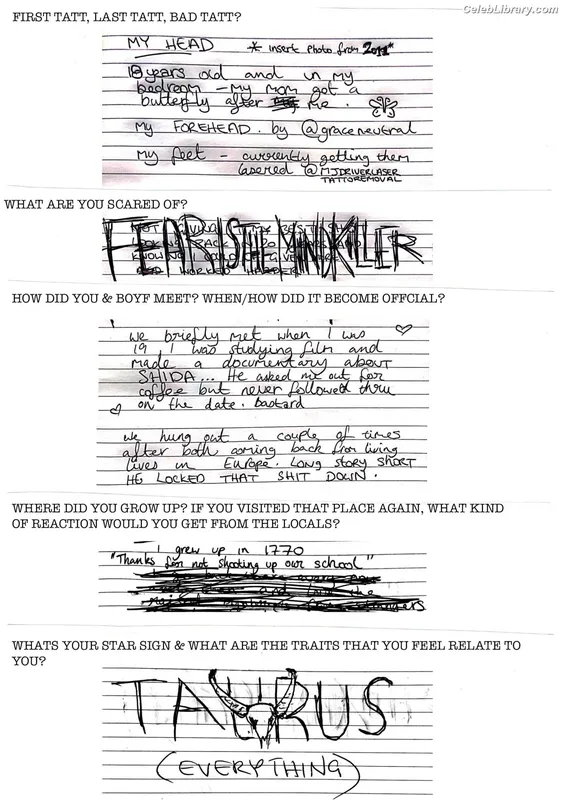 CelebLibrary.com
FIRST TATT, LAST TATT, BAD TATT?
MY HEAD * insert photo from 2011*
18 years old and in my
bedroom - my mom got a
butterfly after me.
my FOREHEAD. by @graceneutral
my feet - currently getting them
lasered @MJDRIVERLASER
TATTOREMOVAL
WHAT ARE YOU SCARED OF?
FEAR IS THE MIND KILLER
NOT GIVING IT MY BEST SHOT
LOOKING BACK
KNOWING I COULD OF GIVEN MORE
WORKED HARDER
HOW DID YOU & BOYF MEET? WHEN/HOW DID IT BECOME OFFCIAL?
we briefly met when I was
19 I was studying film and
made a documentary about
SHIDA... He asked me out for
coffee but never followed thru
on the date. bastard
we hung out a couple of times
after both coming back from living
lives in Europe. LONG STORY SHORT
HE LOCKED THAT SHIT DOWN.
WHERE DID YOU GROW UP? IF YOU VISITED THAT PLACE AGAIN, WHAT KIND
OF REACTION WOULD YOU GET FROM THE LOCALS?
I grew up in 1770
"Thanks for not shooting up our school"
WHATS YOUR STAR SIGN & WHAT ARE THE TRAITS THAT YOU FEEL RELATE TO
YOU?
TAURUS
(EVERYTHING)